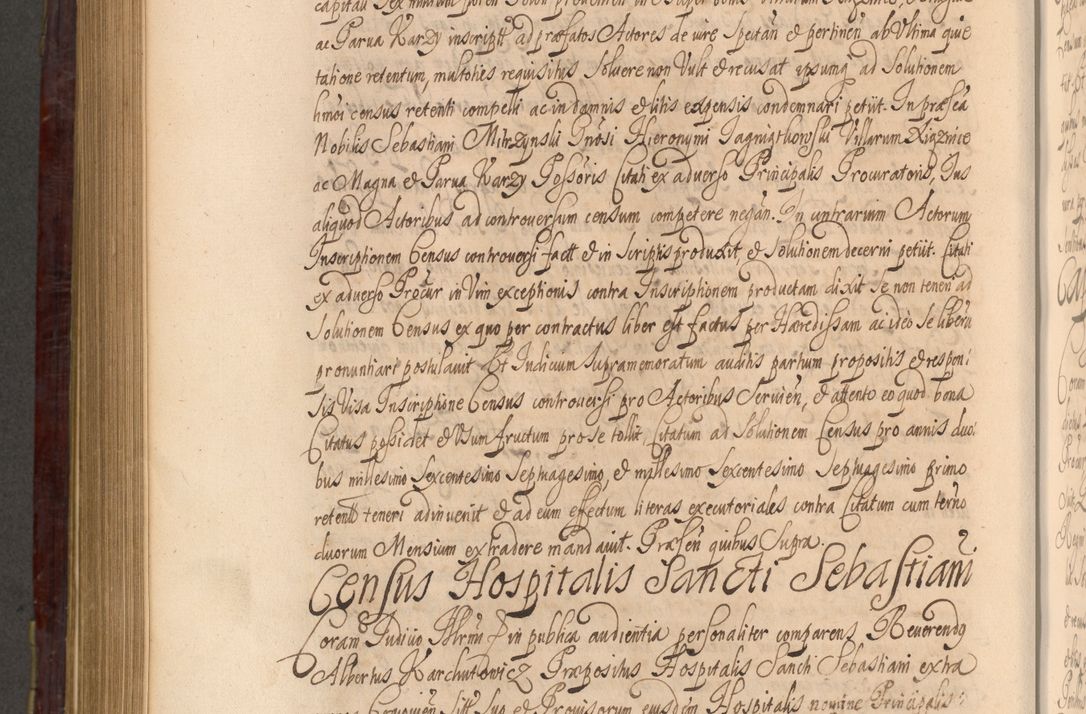 ac Parva Karzy inscript ad præfatos Actores de iure spectan et pertinen ab Ultima quie
tatione retentum, multoties requisitus Solvere non Vult et recusat ipsumq ad Solutionem
hmoi census retenti compelli ac in damnis et litis expensis condemnari petiit. In præsca
Nobilis Sebastiani Mitrzynski Gnosi Hieronymi Jagniathowsky Villarum Xięznice
ac Magna et Parva Karzy Possoris Citati ex adverso Principalis Procuratoris, Jus
aliquod Actoribus ad controversum censum competere negan. In contrarium Actorum
Inscriptionem Census controversi fact et in scriptis produxit, et Solutionem decerni petiit. Citati
ex adverso Procur in Vim exceptionis contra Inscriptionem productam dixit se non teneri ad
Solutionem Census ex quo per contractus liber est factus per Hæredissam ac ideo se liberū
pronuntiari postulavit Et Judicium supramemoratum auditis partium propositis et respon:
sis Visa Inscriptione Census controversi pro Actoribus Servien, et attento eo quod bona
Citatus possidet et Usum fructum pro se tollit, Citatum ad Solutionem Census pro annis duo:
bus millesimo Sexcentesimo Septuagesimo, et millesimo Sexcentesimo Septuagesimo primo
retent teneri adinvenit et ad eum effectum literas executoriales contra Citatum cum terno
duorum Mensium extradere mandavit. Præsen quibus Supra.
Census Hospitalis Sancti Sebastiani
Coram Judicio in publica audientia personaliter comparens Reverendg
Albertus Karchutowicz Præpositus Hospitalis Sancti Sebastiani extra
Provisorum eiusdem Hospitalis nomine Principalis